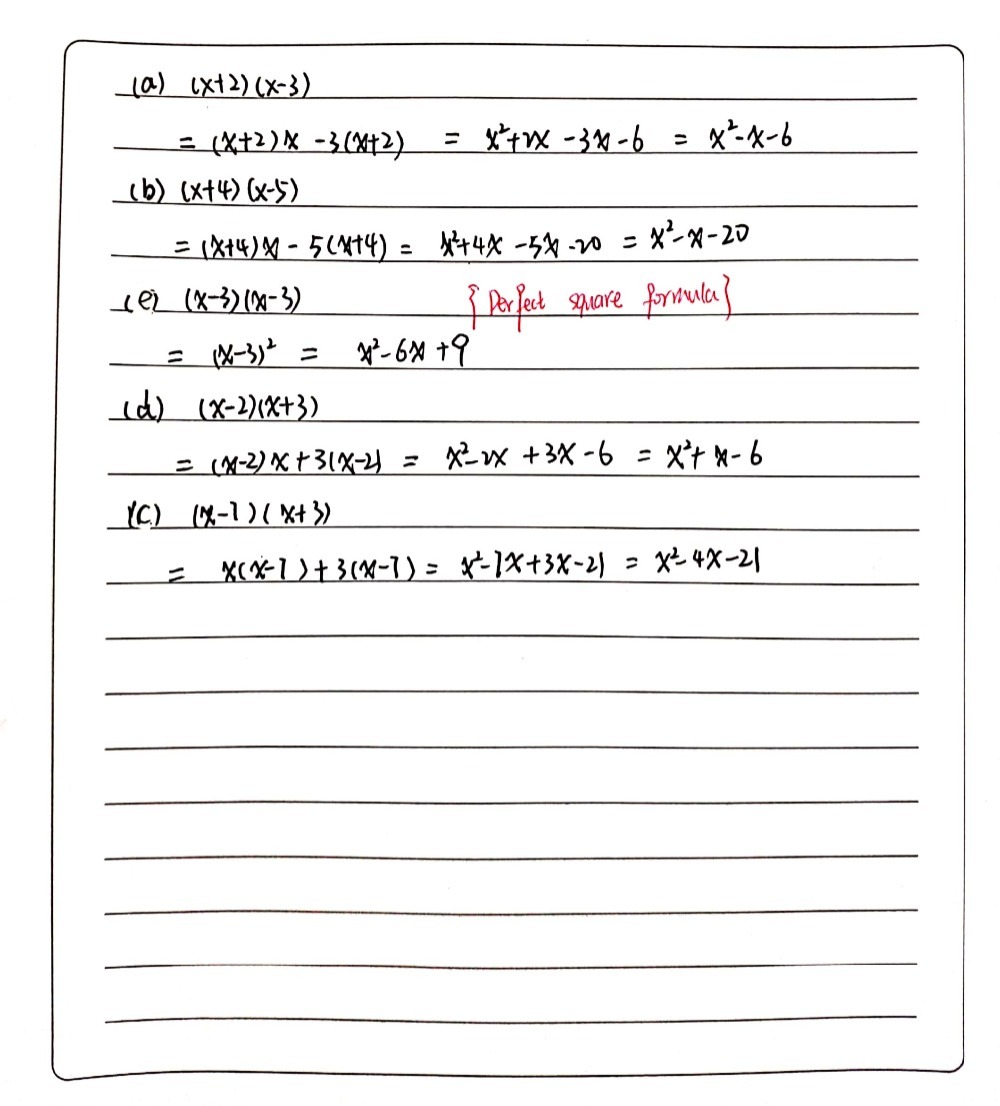 (a) (x+2)(x-3)
= (x+2)x -3(x+2) = x²+2x -3x -6 = x²-x-6
(b) (x+4)(x-5)
= (x+4)x - 5(x+4) = x²+4x -5x -20 = x²-x-20
(e) (x-3)(x-3) {Perfect square formula}
= (x-3)² = x²-6x+9
(d) (x-2)(x+3)
= (x-2)x+3(x-2) = x²-2x +3x -6 = x²+x-6
(c) (x-7)(x+3)
= x(x-7)+3(x-7) = x²-7x+3x-21 = x²-4x-21